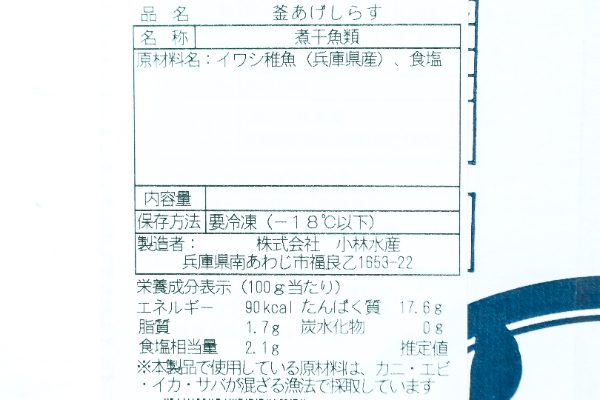 品名 釜あげしらす
名称 煮干魚類
原材料名：イワシ稚魚（兵庫県産）、食塩
内容量
保存方法 要冷凍（－18℃以下）
製造者： 株式会社 小林水産
兵庫県南あわじ市福良乙1653-22
栄養成分表示（100g当たり）
エネルギー 90kcal たんぱく質 17.6g
脂質 1.7g 炭水化物 0g
食塩相当量 2.1g 推定値
※本製品で使用している原材料は、カニ・エビ
・イカ・サバが混ざる漁法で採取しています